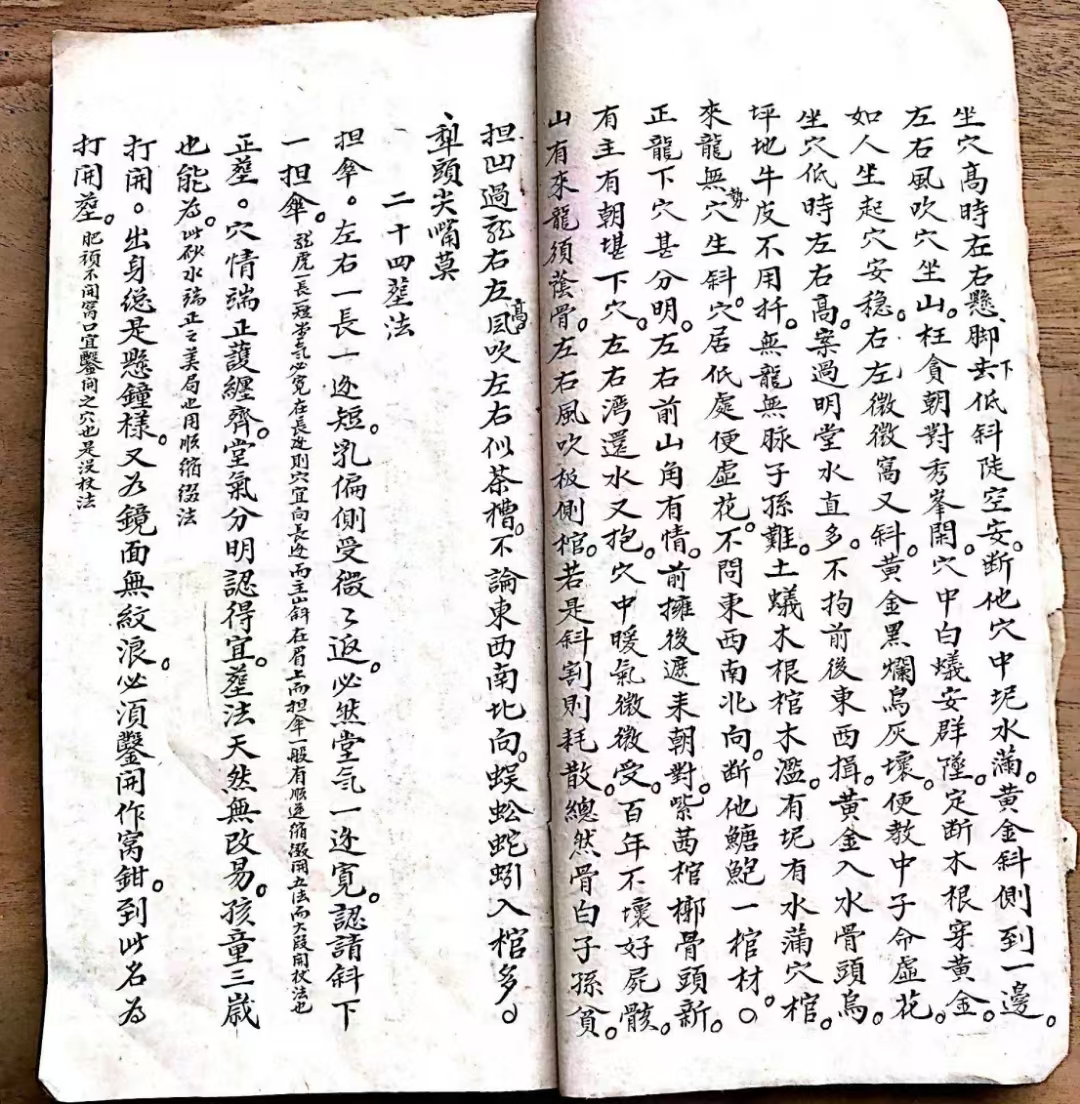 坐穴高時左右懸、脚去下低斜陡空安。断他穴中坭水滿。黄金斜側到一邊。
左右風吹穴坐山。枉貪朝對秀峯閑。穴中白蟻安群墜。定断木根穿黄金。
如人坐起穴安稳。右左微微窩又斜。黄金黑爛烏灰壞。便教中子命虚花。
坐穴低時左右高。案過明堂水直多。不拘前後東西揖。黄金入水骨頭烏。
坪地牛皮不用扦。無龍無脉子孫難。土蟻木根棺木濫。有坭有水蒲穴棺。
來龍無势穴生斜。穴居低處便虚花。不問東西南北向。断他鱔鮑一棺材。
正龍下穴甚分明。左右前山角有情。前擁後遮来朝對。紫茜棺槨骨頭新。
有主有朝堪下穴。左右湾還水又抱。穴中暖氣微微受。百年不壞好屍骸。
山有來龍須蔭骨。左右風吹板側棺。若是斜割則耗散。總然骨白子孫貧。
担凹過右左高風吹左右似茶槽。不論東西南北向。蜈蚣蛇蚓入棺多。
犁頭尖嘴莫
二十四塟法
担傘。左右一長一边短。乳偏側受微々返。必然堂气一边寬。認請斜下
一担傘。龙虎一長短弟氣必宽在長边則穴宜向長边而主山斜在眉上而担傘一般有順逆缩缀開立法而大段開杖法也
正塟。穴情端正護纏齊。堂氣分明認得宜。塟法天然無改易。孩童三歳
也能為。此砂水端正之美局也用順缩缀法
打開。出身縂是懸鐘樣。又为鏡面無紋浪。必須鑿開作窝鉗。到此名為
打開塟。肥頑不開窩口宜鑿開之穴也是没杖法